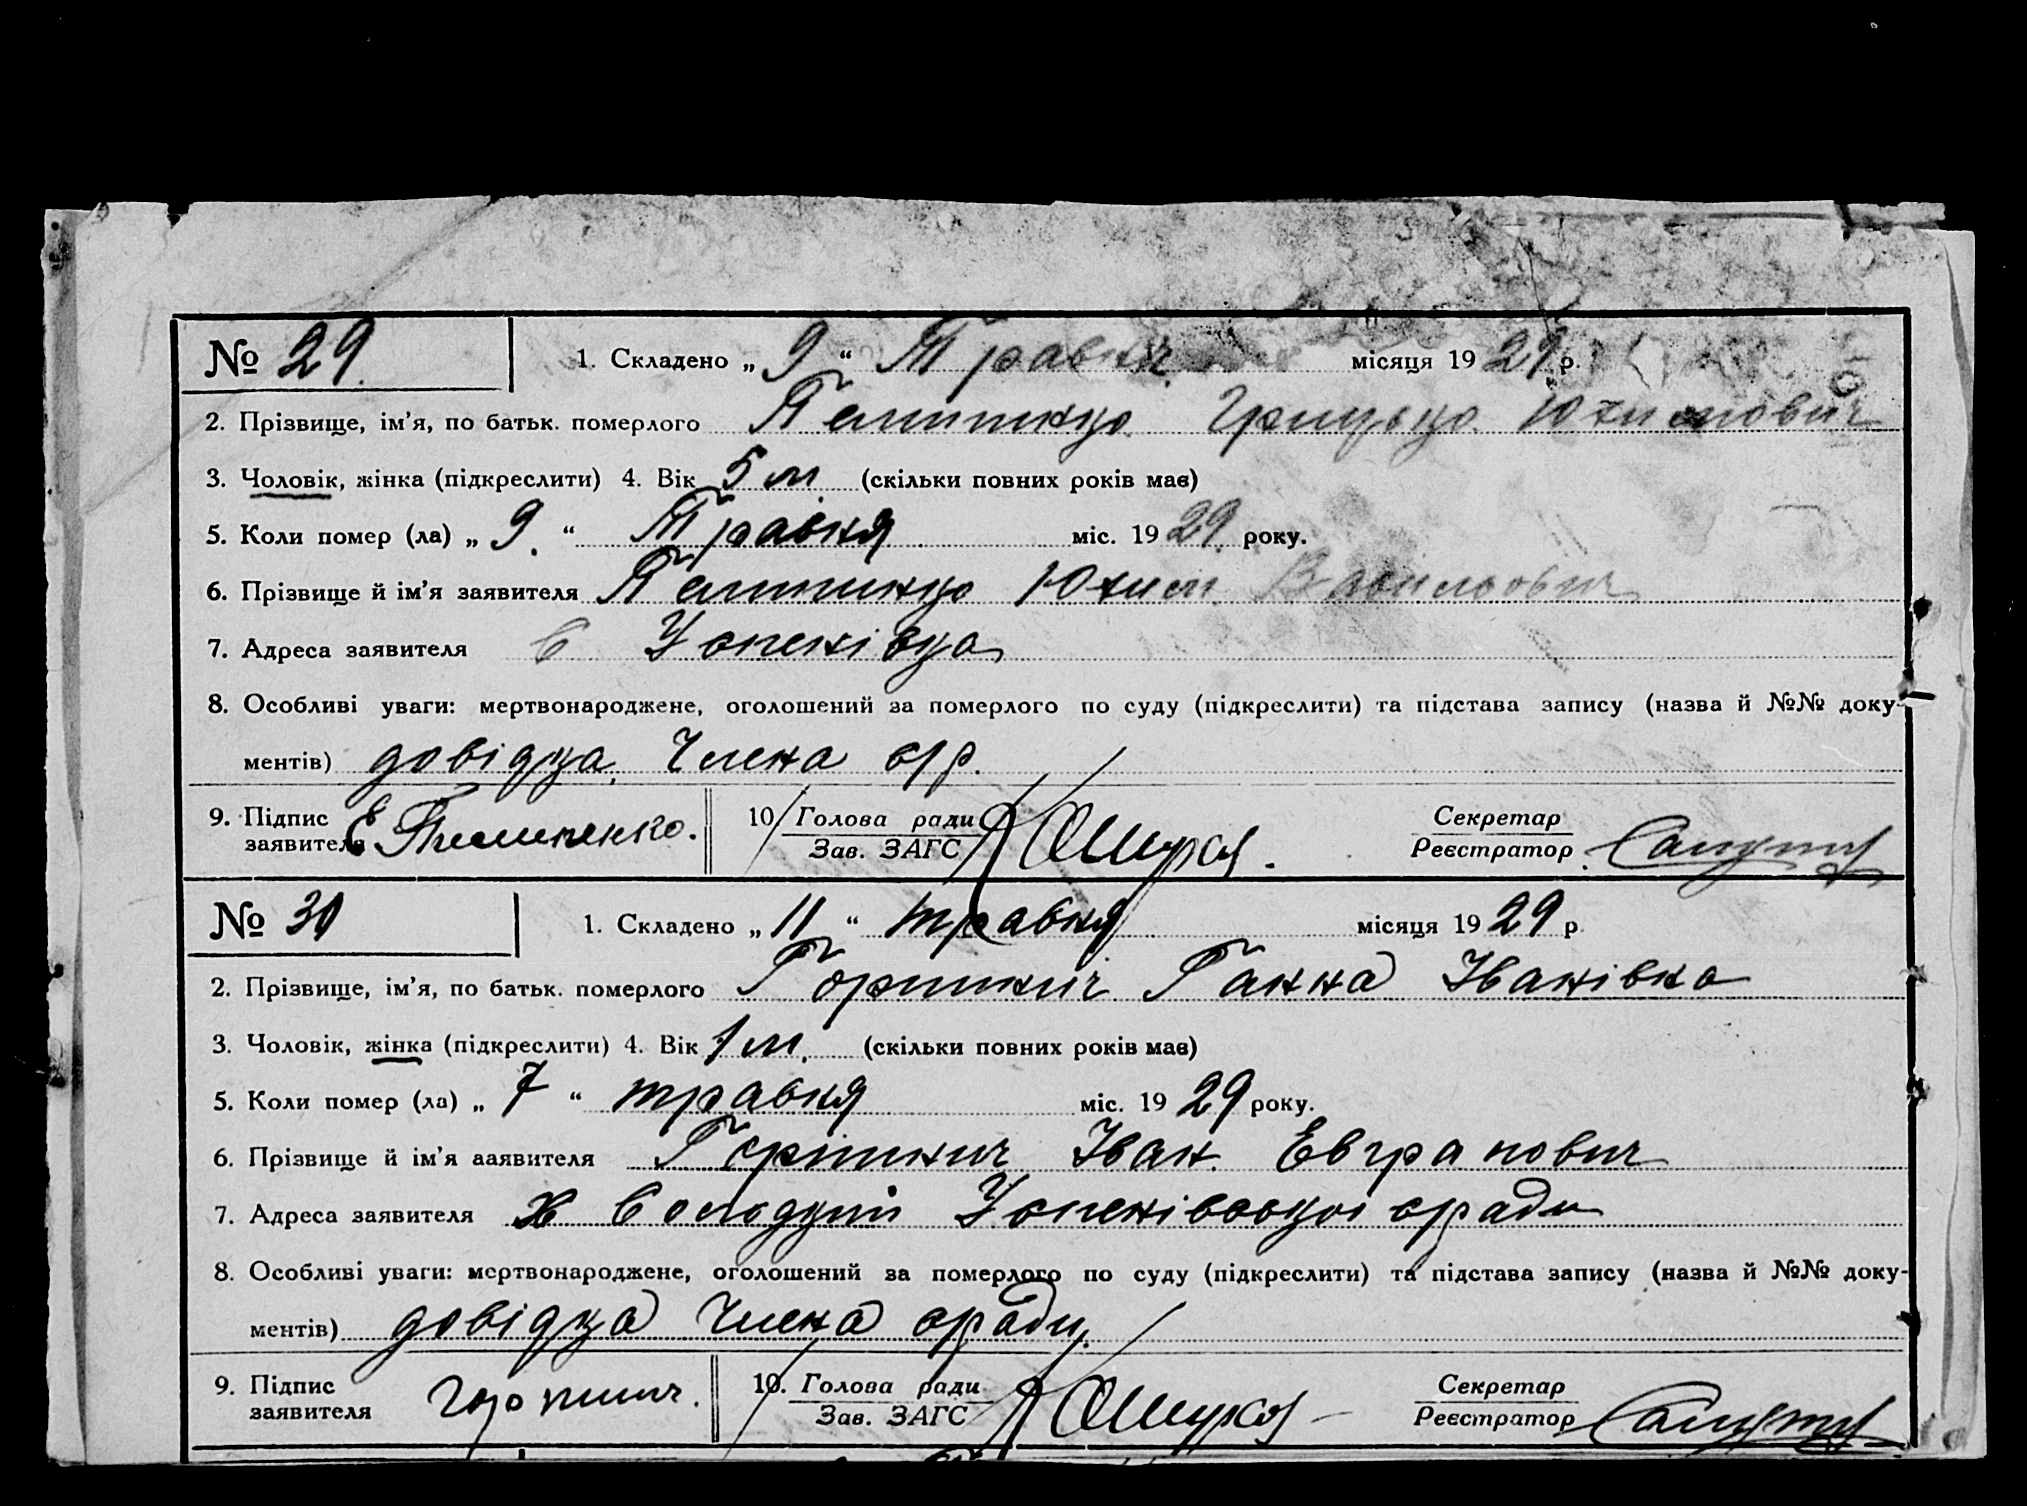 № 29. 1. Складено „ 9 “ Травня місяця 1929 р.
2. Прізвище, ім’я, по батьк. померлого Грицько Юхимович
3. Чоловік, жінка (підкреслити) 4. Вік 5 м. (скільки повних років має)
5. Коли помер (ла) „ 9. “ Травня міс. 1929 року.
6. Прізвище й ім’я заявителя Юхим Васильович
7. Адреса заявителя в Успенівка
8. Особливі уваги: мертвонароджене, оголошений за померлого по суду (підкреслити) та підстава запису (назва й №№ доку-
ментів) довідка Члена с/р.
9. Підпис 10 Голова ради Секретар
заявителя Зав. ЗАГС Реєстратор
№ 30 1. Складено „ 11 “ травня місяця 1929 р.
2. Прізвище, ім’я, по батьк. померлого Ганна Іванівна
3. Чоловік, жінка (підкреслити) 4. Вік 1 м. (скільки повних років має)
5. Коли помер (ла) „ 7 “ травня міс. 1929 року.
6. Прізвище й ім’я заявителя Іван
7. Адреса заявителя х Успенівської сради
8. Особливі уваги: мертвонароджене, оголошений за померлого по суду (підкреслити) та підстава запису (назва й №№ доку-
ментів) довідка Члена сради.
9. Підпис 10. Голова ради Секретар
заявителя Зав. ЗАГС Реєстратор